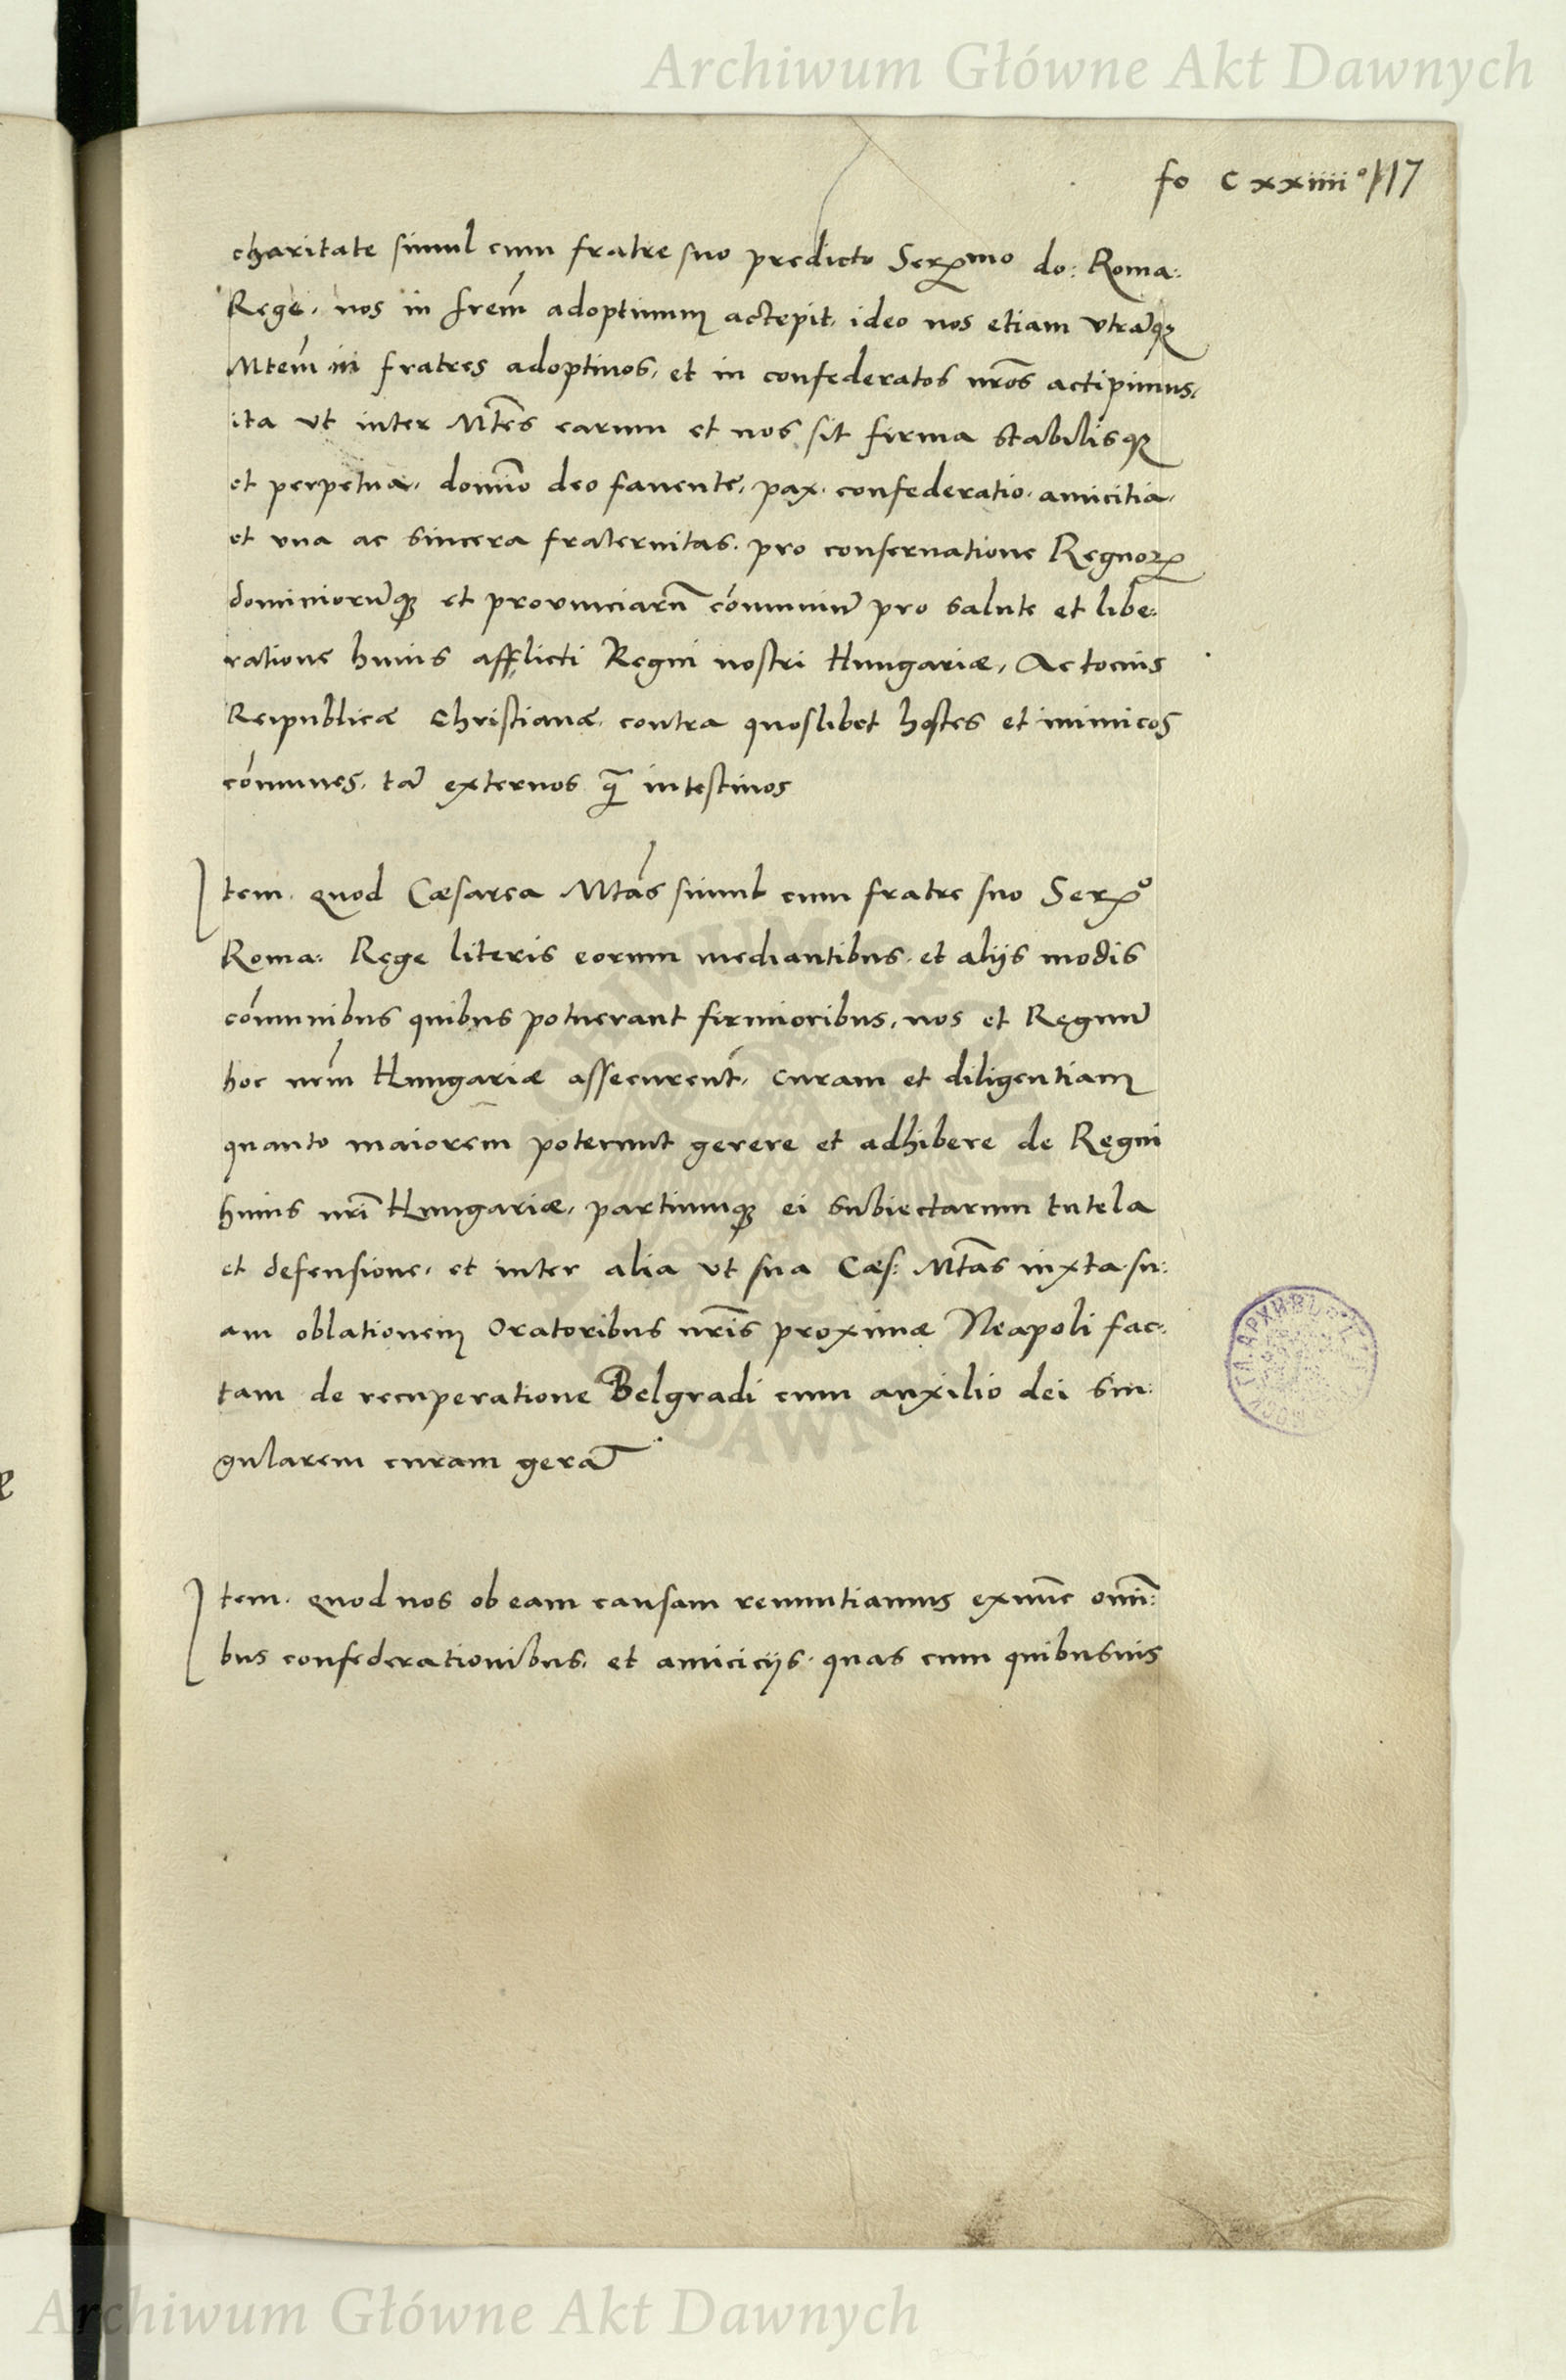 Archiwum Główne Akt Dawnych
fo C xxiiii° 117
charitate simul cum fratre suo predicto Serᵐᵒ do: Roma:
Rege, nos in frem̃ adoptiuum actepit, ideo nos etiam vtrāqȝ
Mtem̃ in fratres adoptiuos, et in confederatos nrõs actipimus,
ita vt inter Mtẽs earum et nos sit firma stabilisqȝ
et perpetua, domĩo deo fauente, pax, confederatio, amicitia,
et vna ac sincera fraternitas, pro conseruatione Regnoꝝ
dominiorūqȝ et prouinciarū cõmuniū pro salute et libe:
ratione huius afflicti Regni nostri Hungariæ, Ac tocius
Reipublicæ Christianæ, contra quoslibet hostes et inimicos
cõmunes, tā externos q̃ intestinos
Item, quod Cæsarea Mtãs simul cum fratre suo Serᵒ
Roma: Rege literis eorum mediantibus, et aliis modis
cõmunibus quibus potuerant firmioribus, nos et Regnū
hoc nrm̃ Hungariæ assecurent, curam et diligentiam
quanto maiorem poterunt gerere et adhibere de Regni
huius nrĩ Hungariæ, partiumqȝ ei subiectarum tutela
et defensione, et inter alia vt sua Cæs: Mtãs iuxta su:
am oblationem Oratoribus nrĩs proximæ Neapoli fac:
tam de recuperatione Belgradi cum auxilio dei sin:
gularem curam gerat
Item, quod nos ob eam causam renuntiamus exnũc omĩ:
bus confederationibus, et amiciciis, quas cum quibusuis
Archiwum Główne Akt Dawnych